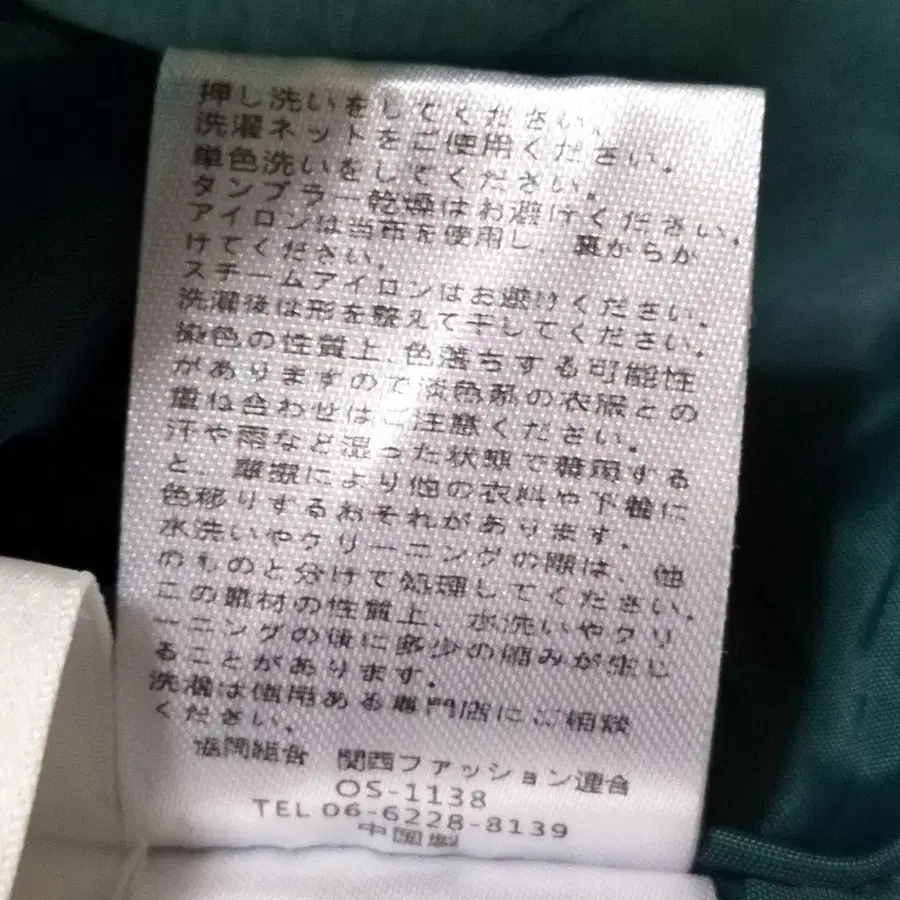 押し洗いをしてください。
洗濯ネットをご使用ください。
単色洗いをしてください。
タンブラー乾燥はお避けください。
アイロンは当布を使用し、裏からか
けてください。
スチームアイロンはお避けください。
洗濯後は形を整えて干してください。
染色の性質上、色落ちする可能性
がありますので淡色系の衣服との
重ね合わせはご注意ください。
汗や雨など湿った状態で着用する
と、摩擦により他の衣料や下着に
色移りするおそれがあります。
水洗いやクリーニングの際は、他
のものと分けて処理してください。
この素材の性質上、水洗いやクリ
ーニングの後に多少の縮みが生じ
ることがあります。
洗濯は信用ある専門店にご相談
ください。
協同組合 関西ファッション連合
OS-1138
TEL 06-6228-8139
中国製